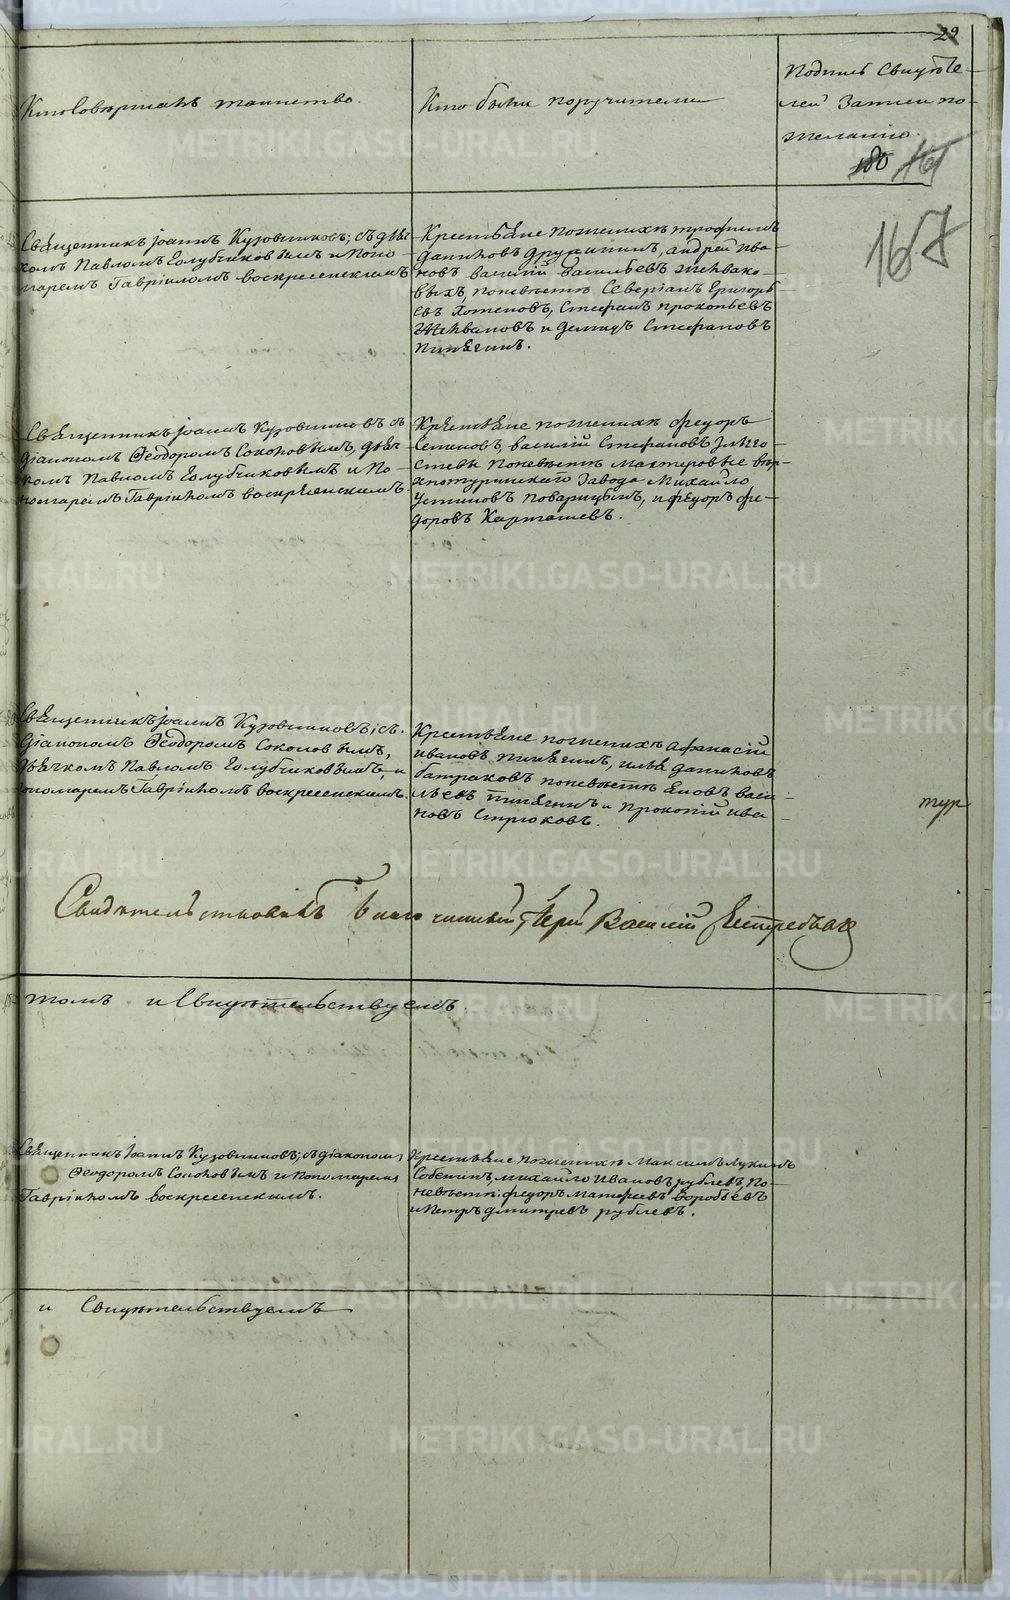 29
Кто совершалъ таинство.
Кто были поручители
Подпись свидѣте-
лей записи по
желанію.
180
167
Священникъ Іоаннъ Кузовниковъ; съ дьяч-
комъ Павломъ Голубчиковымъ и поно-
маремъ Гавріиломъ Воскресенскимъ
Крестьяне по женихѣ Трофимъ
Даниловъ Андрей Ива-
новъ Василій Васильевъ
по невѣстѣ Северіанъ Григорь
евъ Стефанъ Прокопьевъ
и Демидъ Стефановъ
Пинягинъ.
Священникъ Іоаннъ Кузовниковъ съ
діакономъ Ѳеодоромъ Соколовымъ, дьяч-
комъ Павломъ Голубчиковымъ и по-
номаремъ Гавріиломъ Воскресенскимъ.
Крестьяне по женихѣ Федоръ
Семеновъ, Василій Стефановъ
по невѣстѣ мастеровые вер-
хнотуринскаго завода Михайло
Устиновъ и Федоръ Фе-
доровъ Карташевъ.
Священникъ Іоаннъ Кузовниковъ; съ
діакономъ Ѳеодоромъ Соколовымъ,
дьячкомъ Павломъ Голубчиковымъ, и
пономаремъ Гавріиломъ Воскресенскимъ.
Крестьяне по женихѣ Афанасій
Ивановъ Пинягинъ, Илья Даниловъ
Батраковъ по невѣстѣ Васи-
льевъ Пинягинъ и Прокопій Ива
новъ Стрюковъ.
тур
Свидѣтельствовалъ Благочинный Іерей Василій
томъ и свидѣтельствуемъ.
Священникъ Іоаннъ Кузовниковъ; съ діакономъ
Ѳеодоромъ Соколовымъ и пономаремъ
Гавріиломъ Воскресенскимъ.
Крестьяне по женихѣ Максимъ Лукинъ
Михайло Ивановъ Рублевъ, по
невѣстѣ: Федоръ Матфеевъ Воробьевъ
и Петръ Дмитріевъ Рублевъ.
и свидѣтельствуемъ
METRIKI.GASO-URAL.RU